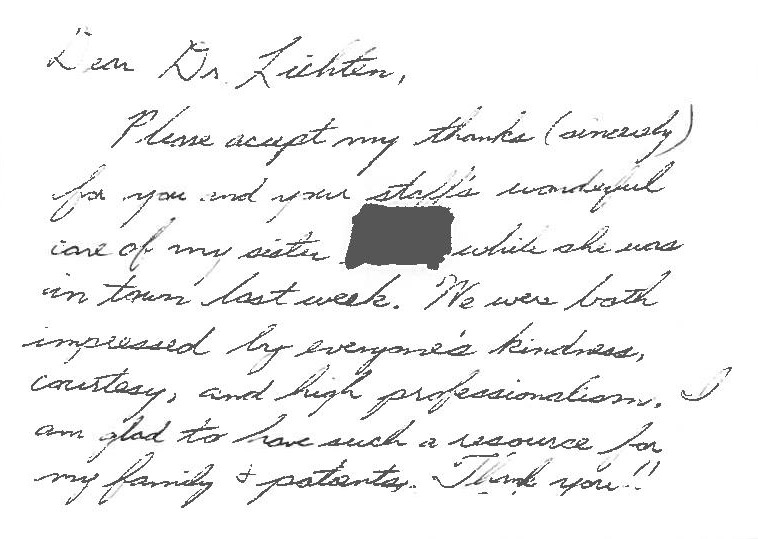 Dear Dr. Lichten,
Please accept my thanks (sincerely)
for you and your staff's wonderful
care of my sister while she was
in town last week. We were both
impressed by everyone's kindness,
courtesy, and high professionalism. I
am glad to have such a resource for
my family & patients. Thank you!!